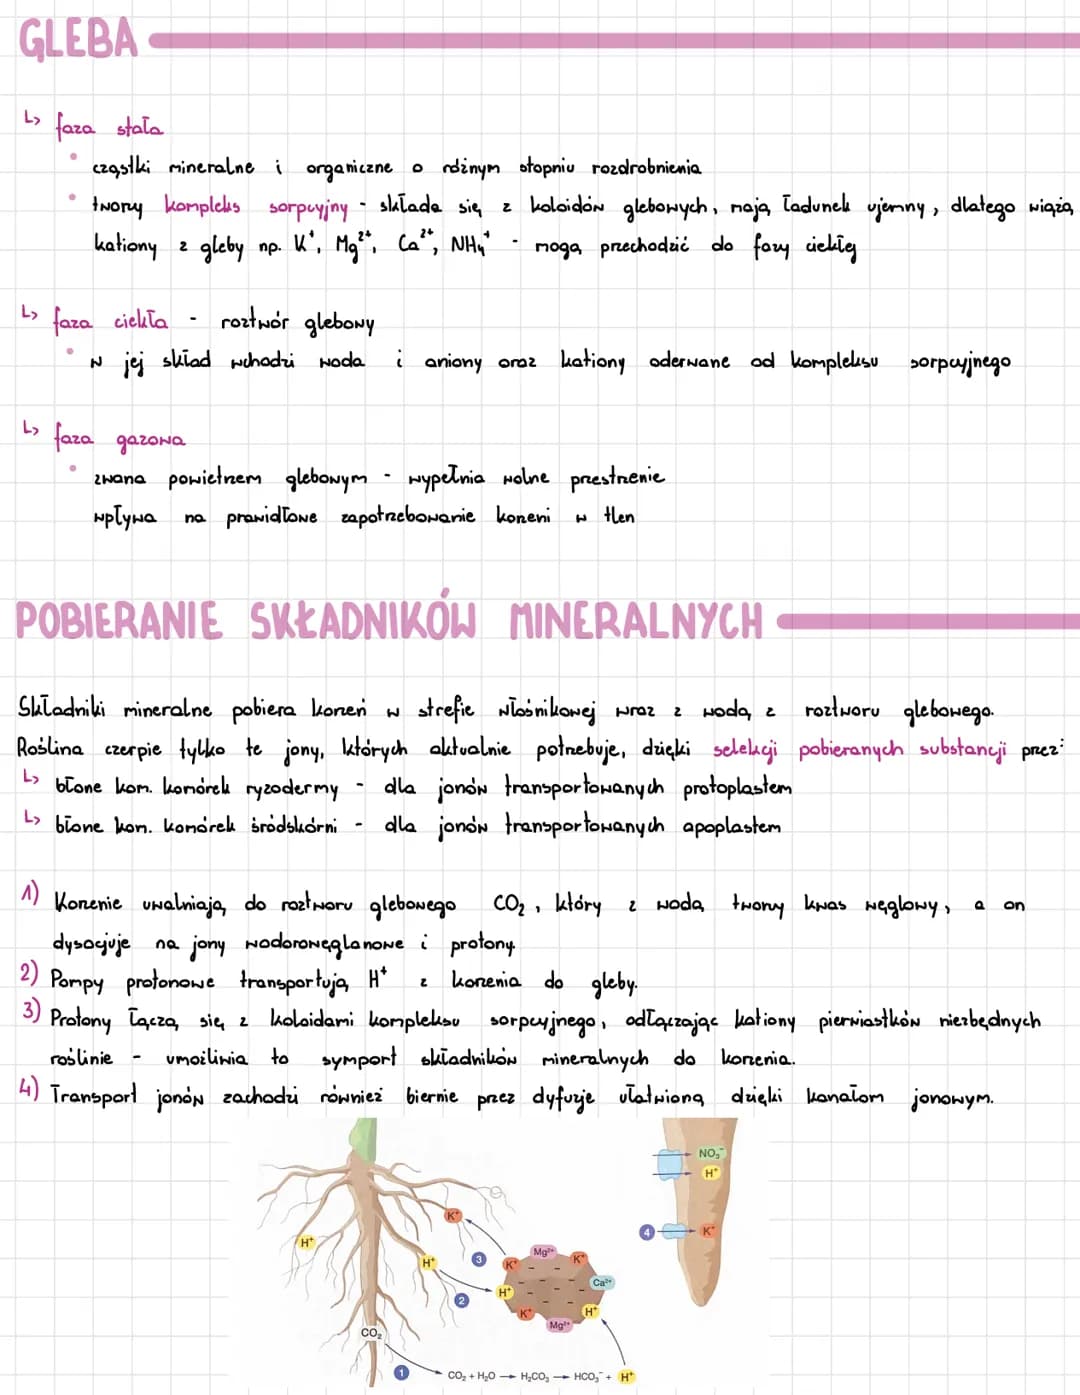 GLEBA
↳ faza stała
• cząstki mineralne i organiczne o różnym stopniu rozdrobnienia
• tworzy kompleks sorpcyjny - składa się z koloidów glebowych, mają ładunek ujemny, dlatego wiążą
kationy z gleby np. K⁺, Mg²⁺, Ca²⁺, NH₄⁺ - mogą przechodzić do fazy ciekłej
↳ faza ciekła - roztwór glebowy
• w jej skład wchodzi woda i aniony oraz kationy oderwane od kompleksu sorpcyjnego
↳ faza gazowa
• zwana powietrzem glebowym - wypełnia wolne przestrzenie
wpływa na prawidłowe zapotrzebowanie korzeni w tlen
POBIERANIE SKŁADNIKÓW MINERALNYCH
Składniki mineralne pobiera korzeń w strefie włośnikowej wraz z wodą z roztworu glebowego.
Roślina czerpie tylko te jony, których aktualnie potrzebuje, dzięki selekcji pobieranych substancji przez:
↳ błonę kom. komórek ryzodermy - dla jonów transportowanych protoplastem
↳ błonę kom. komórek śródskórni - dla jonów transportowanych apoplastem
1) Korzenie uwalniają do roztworu glebowego CO₂, który z wodą tworzy kwas węglowy, a on
dysocjuje na jony wodorowęglanowe i protony.
2) Pompy protonowe transportują H⁺ z korzenia do gleby.
3) Protony łączą się z koloidami kompleksu sorpcyjnego, odłączając kationy pierwiastków niezbędnych
roślinie - umożliwia to symport składników mineralnych do korzenia.
4) Transport jonów zachodzi również biernie przez dyfuzję ułatwioną dzięki kanałom jonowym.
NO₃⁻
H⁺
K⁺
4
K⁺
H⁺
H⁺
3
K⁺
Mg²⁺
K⁺
Ca²⁺
H⁺
2
K⁺
H⁺
Mg²⁺
CO₂
1
CO₂ + H₂O → H₂CO₃ → HCO₃⁻ + H⁺